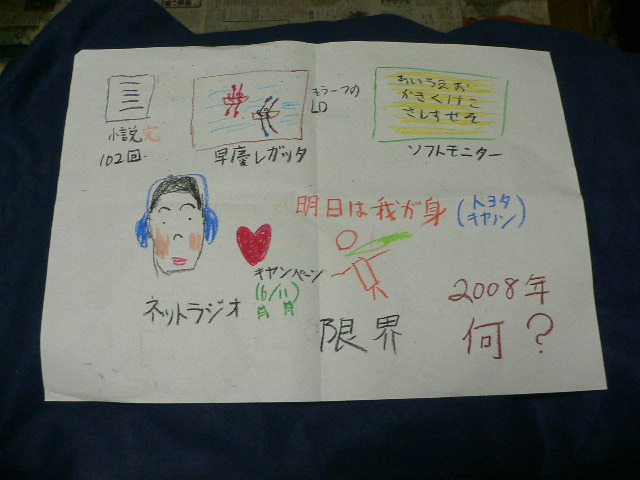 小説完
102回
早慶レガッタ
LD
あいうえお
かきくけこ
さしすせそ
ソフトモニター
明日は我が身
(トヨタ
キヤノン)
ネットラジオ
キャンペーン
(6/11)
月 月
限界
2008年
何?